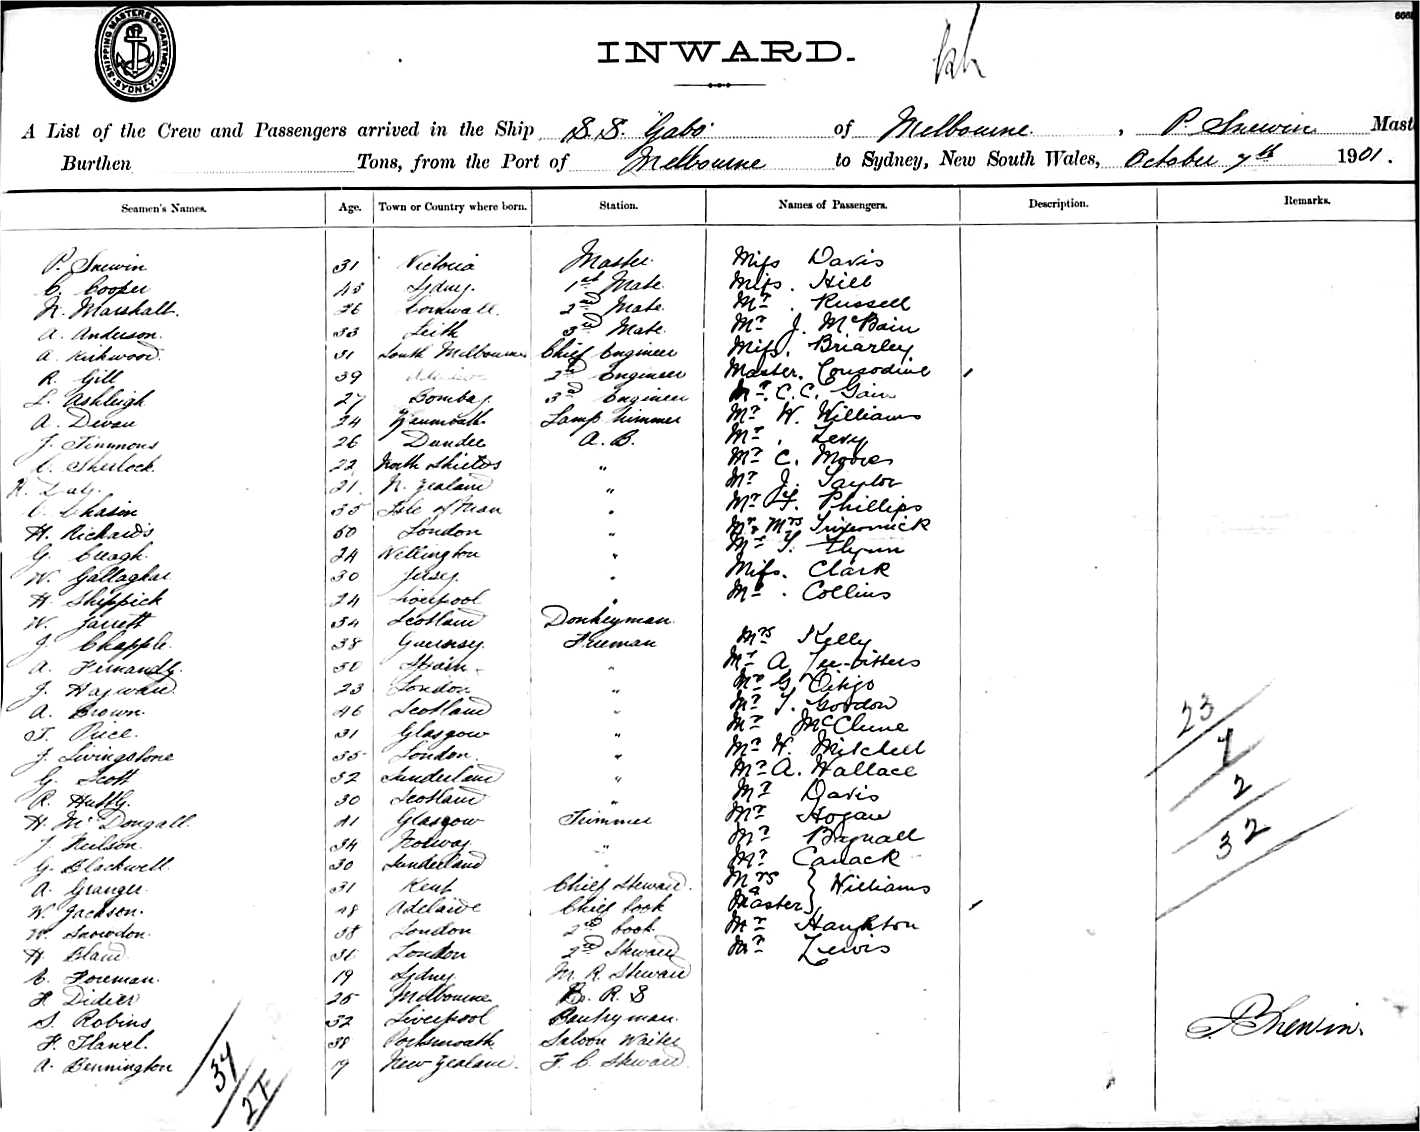 SHIPPING MASTERS DEPARTMENT SYDNEY
INWARD.
A List of the Crew and Passengers arrived in the Ship S.S. Gabo of Melbourne, P. Snewin Mast
Burthen Tons, from the Port of Melbourne to Sydney, New South Wales, October 7th 1901.
Seamen's Names. Age. Town or Country where born. Station. Names of Passengers. Description. Remarks.
P. Snewin 31 Victoria Master Miss Davis
C. Cooper 45 Sydney. 1st Mate Miss. Hill
N. Marshall. 26 Cornwall. 2nd Mate. Mr. Russell
A. Anderson. 33 Leith 3rd Mate Mr J. McBain
A. Kirkwood. 31 South Melbourne Chief Engineer Miss. Briarley
R. Gill 39 2nd Engineer Master. Consodine
L. Ashleigh 27 Bombay. 3rd Engineer Mr. C. C. Gain
A. Devau 24 Yarmouth Lamp Trimmer Mr W. Williams
J. Timmons 26 Dundee A. B. Mr. Levy
C. Sherlock 22 North Shields " Mr C. Moores
H. 21. N. Zealand " Mr J. Taylor
35 Isle of Man " Mr F. Phillips
H. Richards 60 London " Mr & Mrs
G. Creagh. 24 Wellington " Mr T. Flynn
W. Gallagher 30 Jersey " Miss. Clark
H. Shippick 24 Liverpool " Mr. Collins
W. Jarrett 34 Scotland Donkeyman.
J. Chapple. 38 Guernsey Fireman Mrs Kelly
A. 50 Spain " Mr A Lee-Bitters
J. Hayward 23 London " Mr G
A. Brown. 46 Scotland " Mr T. Gordon
T. Price. 31 Glasgow " Mr McClune
J. Livingstone 35 London. " Mr H. Mitchell
G. Scott 32 Sunderland " Mr A. Wallace
R. 30 Scotland " Mr Davis
H. McDougall. 41 Glasgow Trimmer Mr Hogan
Neilson. 34 Norway " Mr Bagnall
G. Blackwell 30 Sunderland " Mr Canack
A. Granger 31 Kent Chief Steward. Mrs & Master } Williams
W. Jackson. 48 Adelaide Chief Cook
W. Snowdon. 38 London 2nd Cook. Mr Haughton
H Bland 31 London 2nd Steward Mr Lewis
C. Foreman. 19 Sydney M. R. Steward
F. Didier 25 Melbourne B. R. S
S. Robins 32 Liverpool Pantryman.
F. Flavel. 38 Portsmouth Saloon Waiter
A. Bennington 19 New Zealand. F. C. Steward
23
7
2
32
P Snewin.
37
27